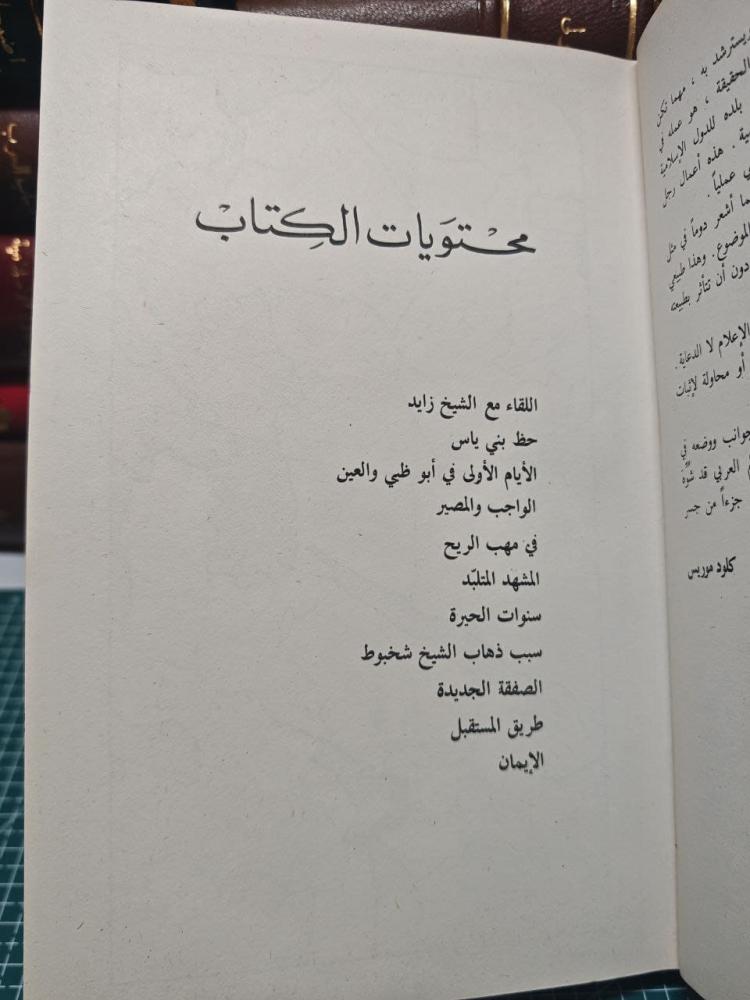 محتويات الكتاب
اللقاء مع الشيخ زايد
حظ بني ياس
الأيام الأولى في أبو ظبي والعين
الواجب والمصير
في مهب الريح
المشهد المتلبّد
سنوات الحيرة
سبب ذهاب الشيخ شخبوط
الصفقة الجديدة
طريق المستقبل
الإيمان
ويسترشد به ، مهما تكن
الحقيقة ، هو عمله في
بلده للدول الإسلامية
هذه أعمال رجل
عملياً .
أشعر دوماً في مثل
الموضوع . وهذا طبيعي
دون أن تتأثر بطبيعته
الإعلام لا الدعاية .
أو محاولة لإثبات
جوانب ووضعه في
العربي قد شوّه
جزءاً من جسر
كلود موريس